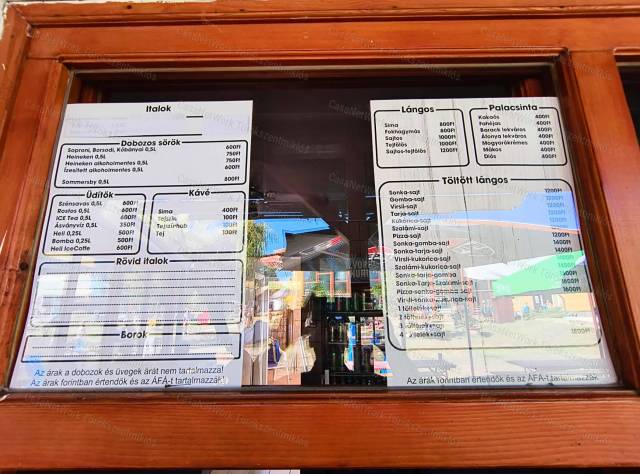 Italok
Dobozos sörök
Soproni, Borsodi, Kőbányai 0,5L 600Ft
Heineken 0,5L 750Ft
Heineken alkoholmentes 0,5L 750Ft
Ízesített alkoholmentes 0,5L 600Ft
Sommersby 0,5L 800Ft
Üdítők
Szénsavas 0,5L 600Ft
Rostos 0,5L 600Ft
ICE Tea 0,5L 600Ft
Ásványvíz 0,5L 350Ft
Hell 0,25L 500Ft
Bomba 0,25L 500Ft
Hell IceCoffe 600Ft
Kávé
Sima 400Ft
Tejszín 100Ft
Tejszínhab 100Ft
Tej 100Ft
Rövid italok
Borok
Az árak a dobozok és üvegek árát nem tartalmazza!
Az árak forintban értendők és az ÁFÁ-t tartalmazzák!
Lángos
Sima 800Ft
Fokhagymás 800Ft
Sajtos 1000Ft
Tejfölös 1000Ft
Sajtos-tejfölös 1200Ft
Palacsinta
Kakaós 400Ft
Fahéjas 400Ft
Barack lekváros 400Ft
Áfonya lekváros 400Ft
Mogyorókrémes 400Ft
Mákos 400Ft
Diós 400Ft
Töltött lángos
Sonka-sajt 1200Ft
Gomba-sajt 1200Ft
Virsli-sajt 1200Ft
Tarja-sajt 1200Ft
Kukorica-sajt
Szalámi-sajt
Pizza-sajt 1200Ft
Sonka-gomba-sajt 1400Ft
Sonka-tarja-sajt 1400Ft
Virsli-kukorica-sajt
Szalámi-kukorica-sajt
Sonka-tarja-gomba
Sonka-Tarja-Szalámi-sajt 1600Ft
Pizza-sonka-gomba-sajt 1600Ft
Virsli-sonka-kukorica-sajt
1 töltelék+sajt
2 töltelék+sajt
3 töltelék+sajt
4 töltelék+sajt 1800Ft
Az árak forintban értendők és az ÁFÁ-t tartalmazzák!